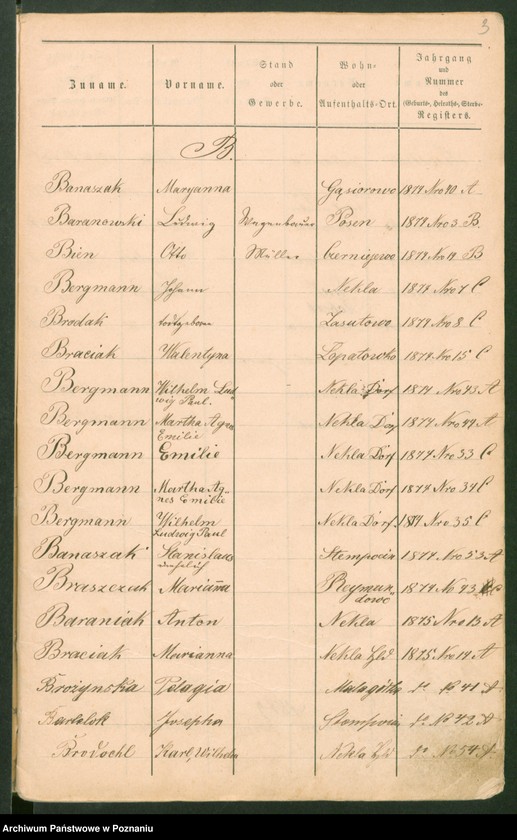 3
Zuname. Vorname. Stand oder Gewerbe. Wohn- oder Aufenthalts-Ort. Jahrgang und Nummer des (Geburts-, Heiraths-, Sterbe-) Registers.
B.
Banaszak Maryanna Gąsiorowo 1874 Nro 40 A
Baranowski Ludwig Wagenbauer Posen 1874 Nro 3 B.
Bien Otto Müller Czerniejewo 1874 Nro 14 B
Bergmann Johann Nekla 1874 Nro 7 C
Brodak todtgeboren Zasutowo 1874 Nro 8 C
Braciak Walentyna Łopatowko 1874 Nro 15 C
Bergmann Wilhelm Ludwig Paul. Nekla Dorf 1874 Nro 43 A
Bergmann Martha Agnes Emilie Nekla Dorf 1874 Nro 44 A
Bergmann Emilie Nekla Dorf 1874 Nro 33 C
Bergmann Martha Agnes Emilie Nekla Dorf 1874 Nro 34 C
Bergmann Wilhelm Ludwig Paul Nekla Dorf 1874 Nro 35 C
Banaszak Stanislaus 1874 Nro 53 A
Braszczak Marianna 1874 No 43 C
Baraniak Anton Nekla 1875 Nro 13 A
Braciak Marianna Nekla 1875 Nro 14 A
Brożynska Pelagia No 41 A
Josepha No 42 A
Karl, Wilhelm Nekla No 54 A
Archiwum Państwowe w Poznaniu